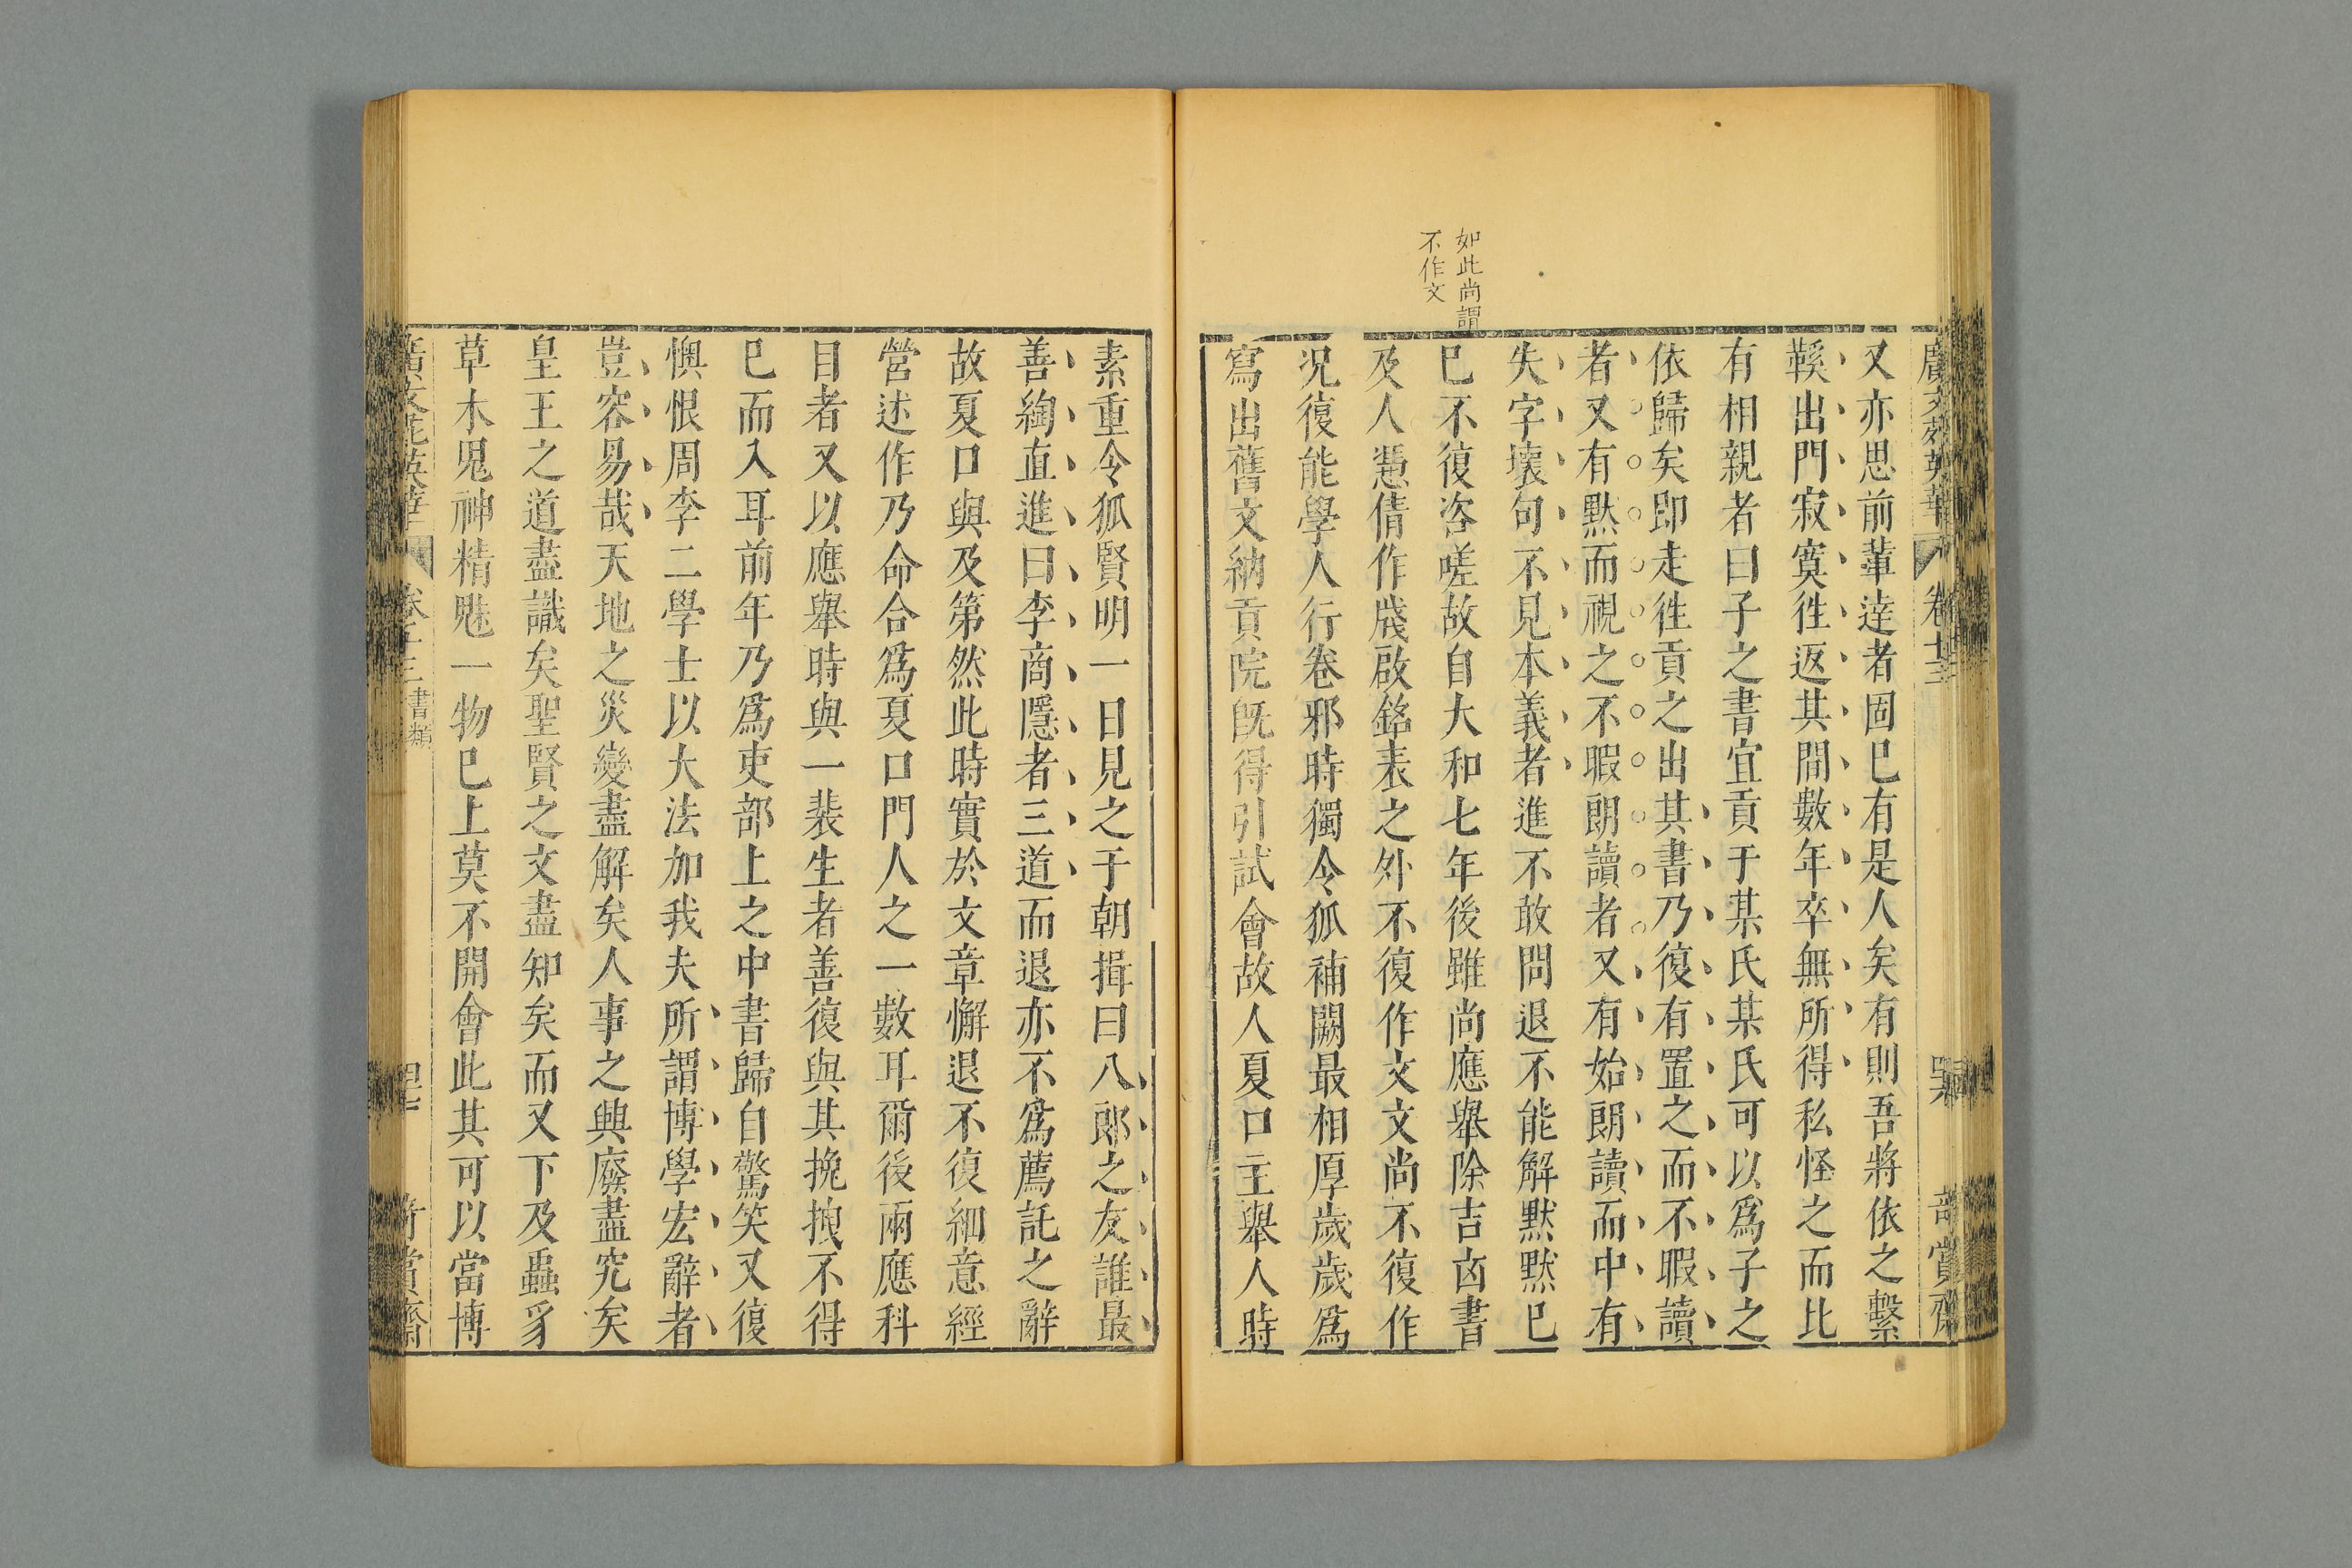 廣文苑英華 卷十三 賞齋
如此尚謂
不作文
又亦思前輩逹者固巳有是人矣有則吾將依之繫
鞵出門寂寞徃返其間數年卒無所得私怪之而比
有相親者曰子之書宜貢于某氏某氏可以爲子之
依歸矣即走徃貢之出其書乃復有置之而不暇讀
者又有默而視之不暇朗讀者又有始朗讀而中有
失字壞句不見本義者進不敢問退不能解默默巳
巳不復咨嗟故自大和七年後雖尚應舉除吉凶書
及人憑倩作牋啟銘表之外不復作文文尚不復作
況復能學人行卷邪時獨令狐補闕最相厚歲歲爲
寫出舊文納貢院旣得引試會故人夏口主舉人時
素重令狐賢明一日見之于朝揖曰八郎之友誰最
善綯直進曰李商隱者三道而退亦不爲薦託之辭
故夏口與及第然此時實於文章懈退不復細意經
營述作乃命合爲夏口門人之一數耳爾後兩應科
目者又以應舉時與一裴生者善復與其挽拽不得
巳而入耳前年乃爲吏部上之中書歸自驚笑又復
懊恨周李二學士以大法加我夫所謂博學宏辭者
豈容易哉天地之災變盡解矣人事之興廢盡究矣
皇王之道盡識矣聖賢之文盡知矣而又下及蟲豸
草木鬼神精魅一物巳上莫不開會此其可以當博
廣文苑英華 卷十三 書類 賞齋